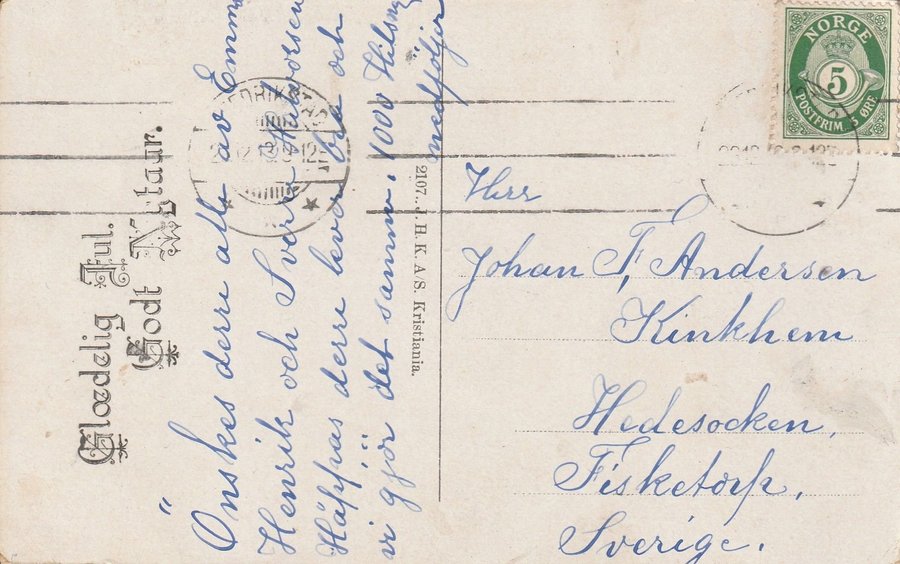 Glædelig Jul.
Godt Nytaar.
Önskes derre alle av Emma
Henrik och Sverre Halvorsen
Håppas derre lever bra och
vi gjör det samm, 1000 Hilsn
medföljer
2107. J. H. K. A/S. Kristiania.
NORGE
5
POSTFRIM. 5 ØRE
Herr
Johan F, Andersen
Kinkhem
Hedesocken,
Fisketorp,
Sverige.